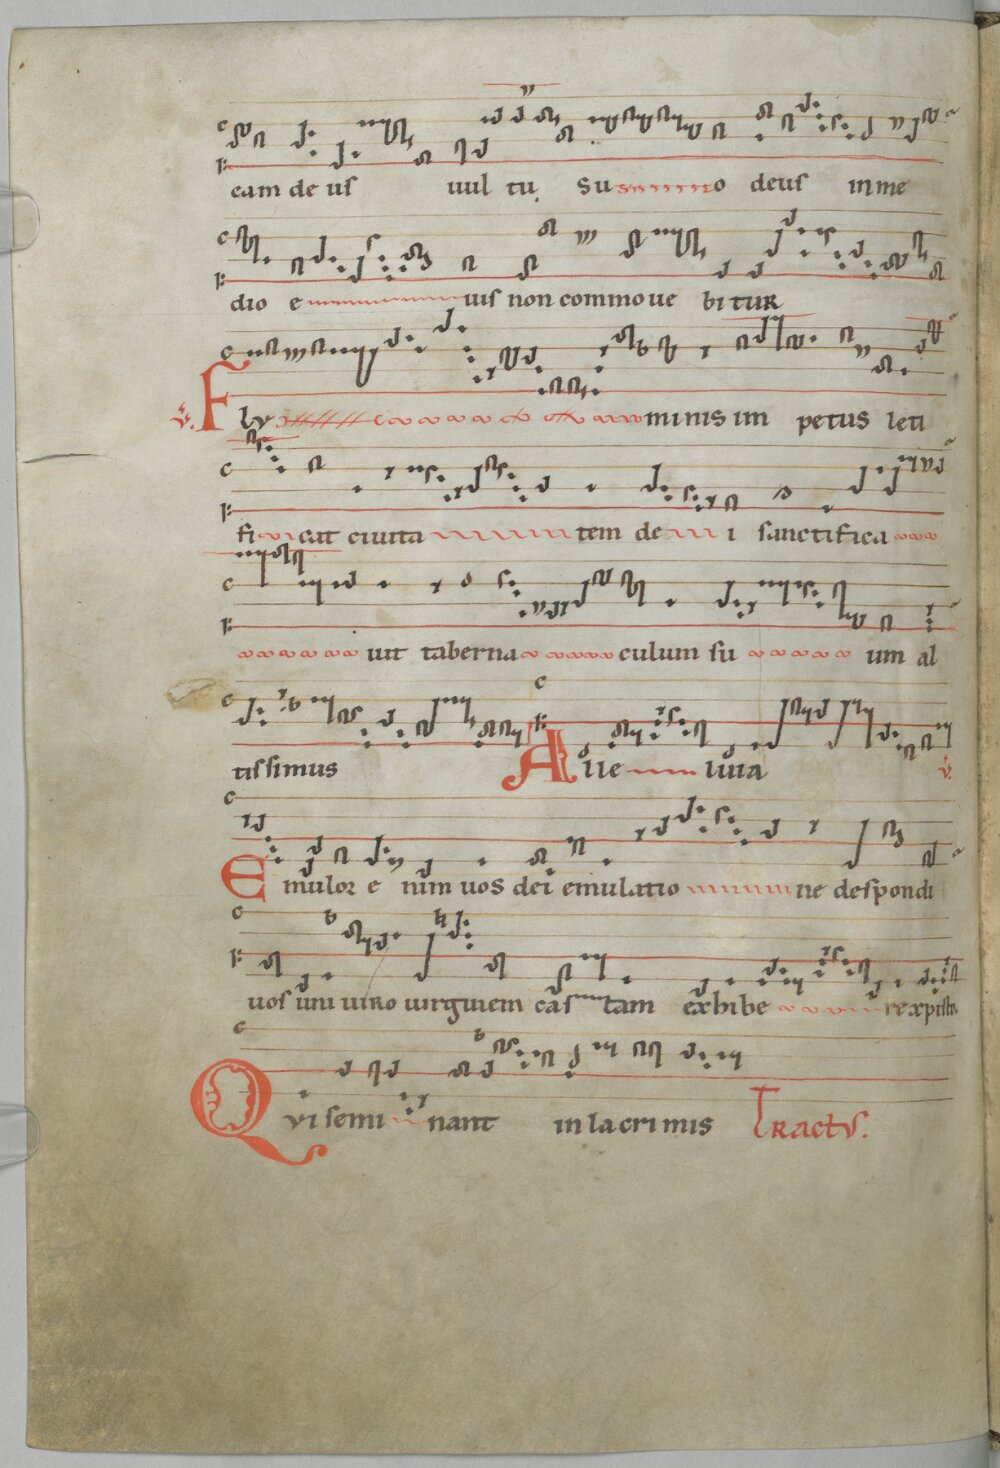 eam deus uul tu suo deus in me
dio e uis non commoue bitur
v. Flv minis im petus leti
fi cat ciuita tem de i sanctifica
uit taberna culum su um al
tissimus Alle luia v.
Emulor e nim uos dei emulatio ne despondi
uos uni uiro uirginem castam exhibe re xpisto.
Qvi semi nant in lacrimis Tractus.